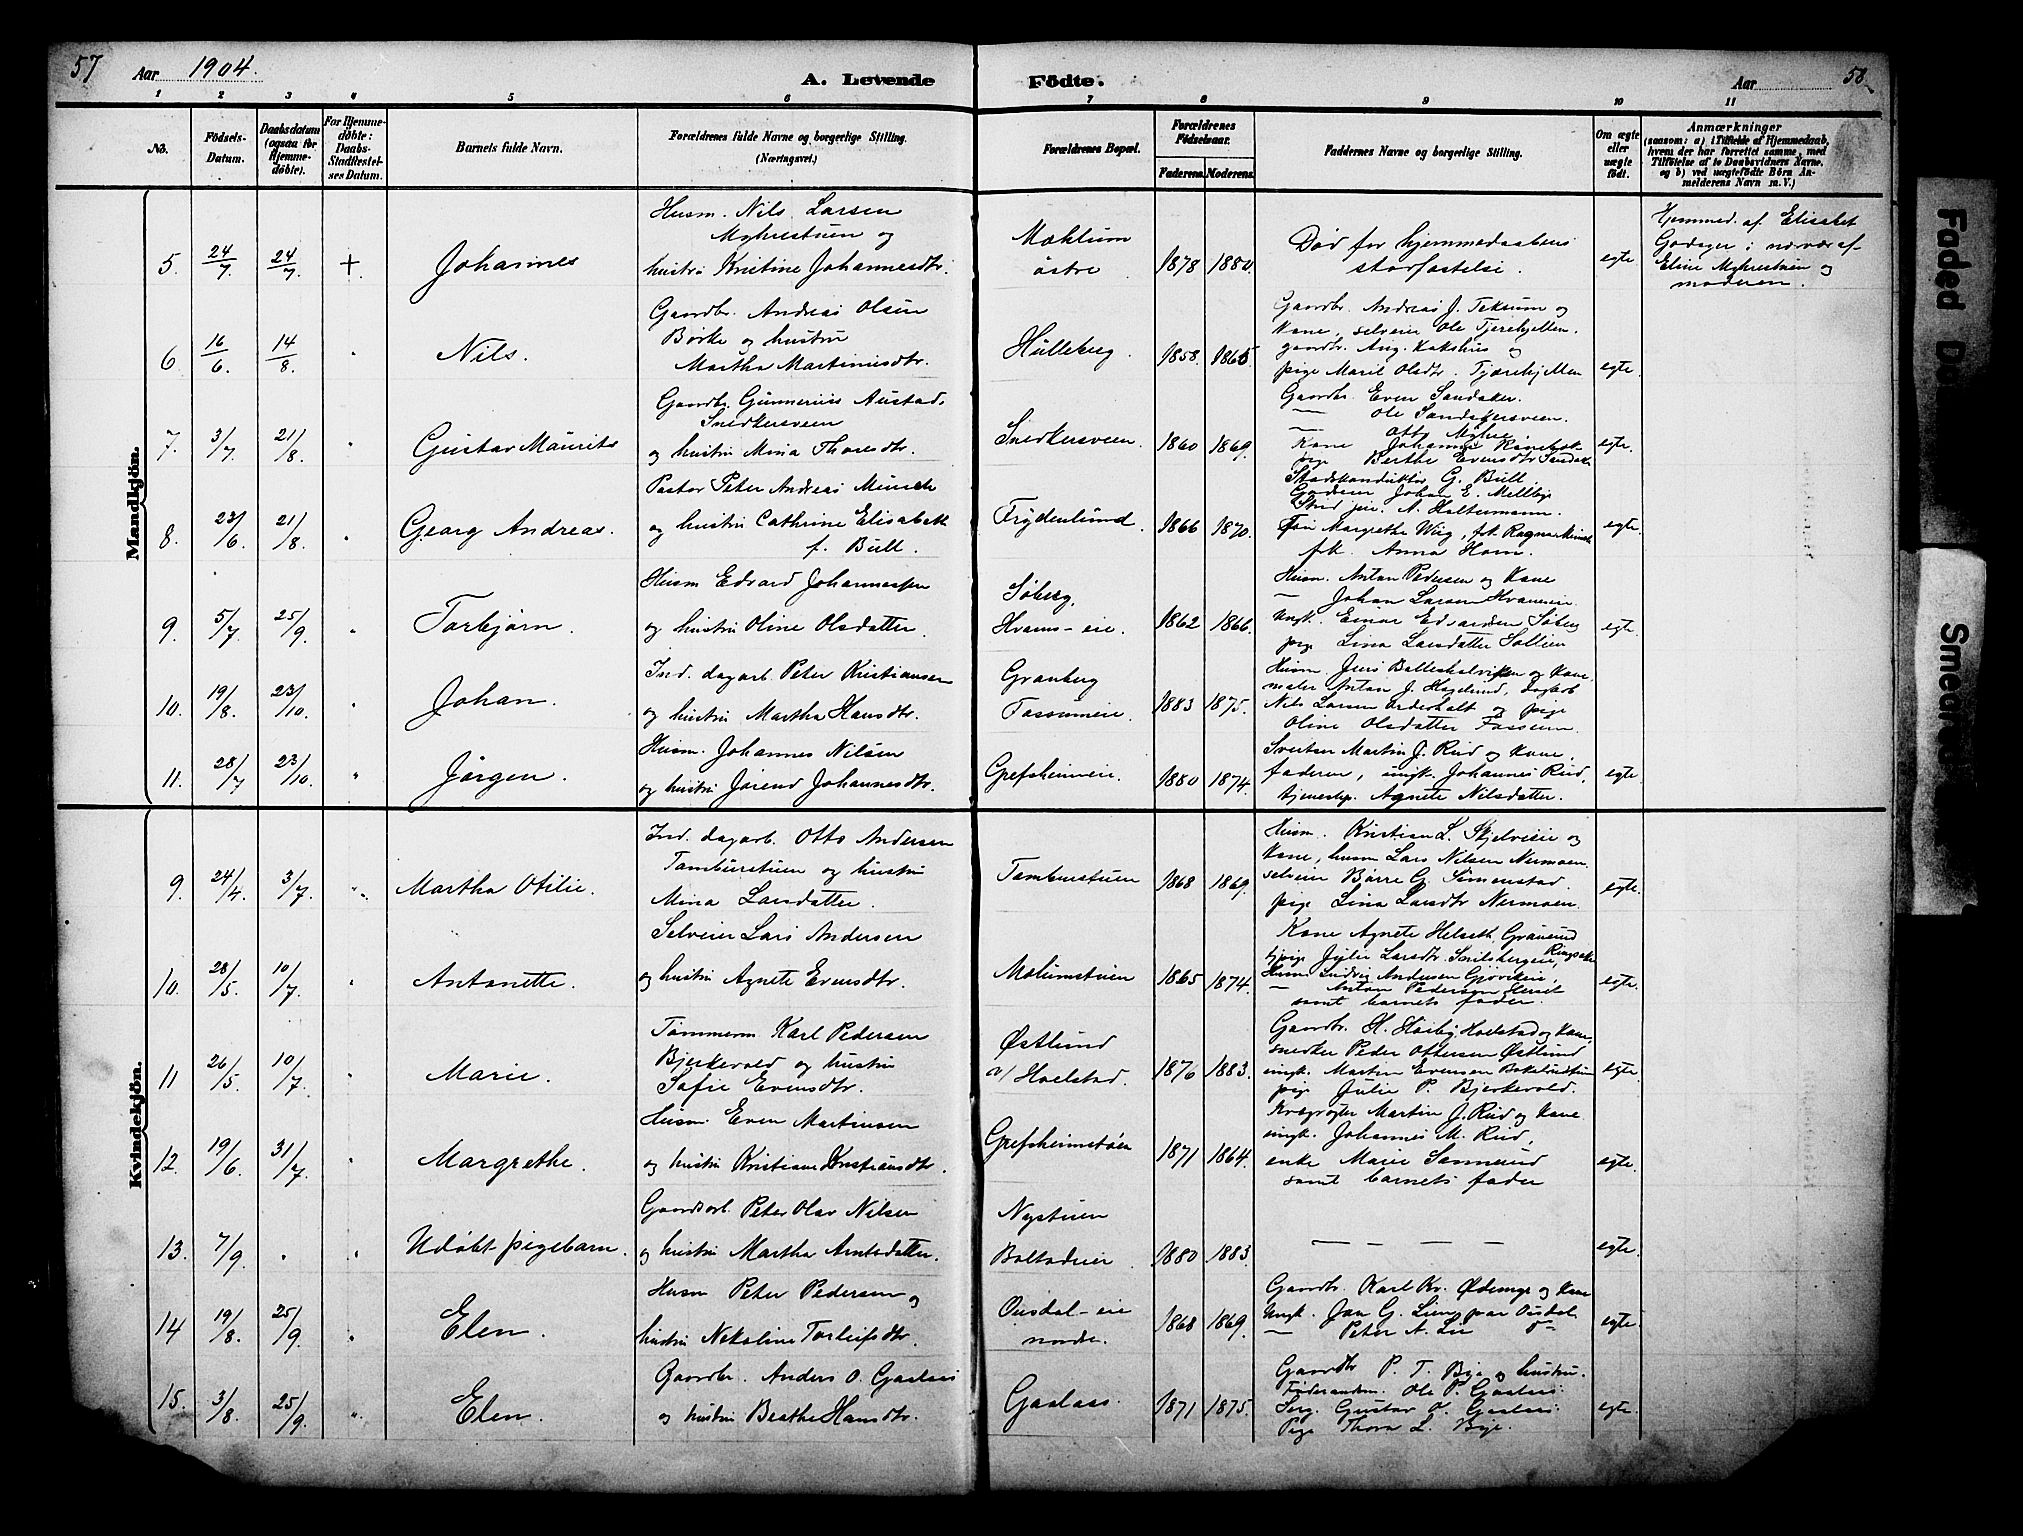 57 Aar 1904. A. Levende Födte. Aar 58
1 2 3 4 5 6 7 8 9 10 11
No. Födsels-Datum. Daabsdatum (ogsaa for Hjemmedöbte). For Hjemmedöbte: Daabs-Stadfæstelses Datum. Barnets fulde Navn. Forældrenes fulde Navne og borgerlige Stilling. (Næringsvei.) Forældrenes Bopæl. Forældrenes Födselsaar. Faderens. Moderens. Faddernes Navne og borgerlige Stilling. Om ægte eller uægte födt. Anmærkninger (saasom: a) i Tilfælde af Hjemmedaab, hvem der har forrettet samme, med Tilföielse af to Daabsvidners Navne, og b) ved uægtefödte Börn Anmelderens Navn m. V.)
Mandkjön.
5. 24/7 24/7. + Johannes
Husm. Nils Larsen
Myhrestuen og
hustru Kristine Johannesdtr.
Mæhlum
østre
1878 1880.
Død før hjemmedaabens
stadfæstelse.
egte
Hjemmed. af Elisabet
Godager i nærvær af
Eline Myhrestuen og
moderen.
6. 16/6. 14/8. " Nils.
Gaardbr. Andreas Olsen
Børke og hustru
Martha Martinusdtr.
Hulleberg.
1858. 1865
Gaardbr. Andreas J. Teksum og
Kone, selveier Ole Tjerehjellen.
gaardbr. Aug. Kakshus og
pige Marit Olsdtr. Tjærehjellen
egte.
7. 3/7. 21/8. " Gustav Maurits
Gaardbr. Gunnerius Austad,
Snedkersveen
og hustru Mina Thoresdtr.
Snedkersveen.
1860 1869.
Gaardbr. Even Sandaker.
— Ole Sandakersveen.
— Otto Myhre.
Kone Johanne
pige Berthe Evensdtr Sandaker
egte.
8. 23/6. 21/8. " Georg Andreas.
Pastor Peter Andreas Munch
og hustru Cathrine Elisabeth
f. Bull.
Frydenlund.
1866 1870.
Stadskonduktør G. Bull
Godseier Johan E. Mellbye
Stud. jur. A. Haltermann.
Fru Margrethe Wiig, frk. Ragna Munch
frk. Anna Horn.
egte
9. 5/7. 25/9. " Torbjørn.
Husm Edvard Johannessen
og hustru Oline Olsdatter.
Søberg,
Hvams-eie.
1862 1866.
Husm. Anton Pedersen og Kone
— Johan Larsen Hvameie.
Ungk. Einar Edvardsen Søberg
pige Lina Larsdatter Sollien
egte.
10. 19/8. 23/10. " Johan.
Ind. dagarb. Peter Kristiansen
og hustru Martha Hansdtr.
Granberg
Fossumeie.
1883 1875.
Husm. Jens Balleshalviken og Kone,
maler Anton J. Hagelund, dagarb
Nils Larsen og pige
Oline Olsdatter Fossum.
egte.
11. 28/7 23/10. " Jørgen.
Husm. Johannes Nilsen
og hustru Jørend Johannesdtr.
Grefsheimeie.
1880 1874.
Sveitser Martin J. Rud og Kone,
faderen, ungk. Johannes Rud,
tjenestep. Agnete Nilsdatter.
egte
Kvindekjön.
9. 24/4. 3/7. " Martha Otilie.
Ind. dagarb. Otto Andersen
Tamburstuen og hustru
Mina Larsdatter.
Tamburstuen
1868 1869.
Husm. Kristian L. Skjelveie og
Kone, husm Lars Nilsen Nermoen.
selveier Børre G. Simenstad.
pige Lina Larsdtr Nermoen.
egte.
10. 28/5. 10/7. " Antonette.
Selveier Lars Andersen
og hustru Agnete Evensdtr.
Mælumstuen
1865 1874.
Kone Agnete Helseth, Gransund
Ringsaker
tjpige Julie Larsdtr.
Husm Ludvig Andersen Gjøvikeie.
— Anton Pedersen
samt barnets fader.
egte.
11 26/5. 10/7. " Marie.
Tømmerm. Karl Pedersen
Bjerkevold og hustru
Sofie Evensdtr.
Østlund
v/ Hoelstad.
1876 1883.
Gaardbr. H. Høiby, Hoelstad og Kone,
snedker Peder Ottersen Østlund
ungk. Martin Evensen
pige Julie P. Bjerkevold.
egte.
12. 19/6. 31/7. " Margrethe.
Husm. Even Martinsen
og hustru Kristiane Kristiansdtr.
Grefsheimstøen
1871 1864.
Kvægrøgter Martin J. Rud og Kone
ungk. Johannes M. Rud,
enke Marie Sannerud
samt barnets fader
egte.
13. 7/9. " " Udøbt pigebarn.
Gaardsarb. Peter Olav Nilsen
og hustru Martha Arntsdatter.
Nystuen
Boltadeier
1880 1883.
— — — —
egte.
14 19/8. 25/9. " Elen.
Husm Peter Pedersen og
hustru Nekoline Torleifsdtr.
Ousdal-eie
nordre.
1868 1869.
Gaardbr. Karl Kr. Ødemye og Kone
Ungk. Jon G. Lien, paa Ousdal.
— Peter A. Lie do
egte.
15. 3/8. 25/9. " Elen.
Gaardbr. Anders O. Gaalaas
og hustru Beathe Hansdtr.
Gaalaas.
1871 1875.
Gaardbr P. T. Bye og hustru.
Føderaadsm. Ole P. Gaalaas.
Serg. Gustav O. Gaalaas.
Pige Thora L. Bye.
egte.
Faded
Smeared